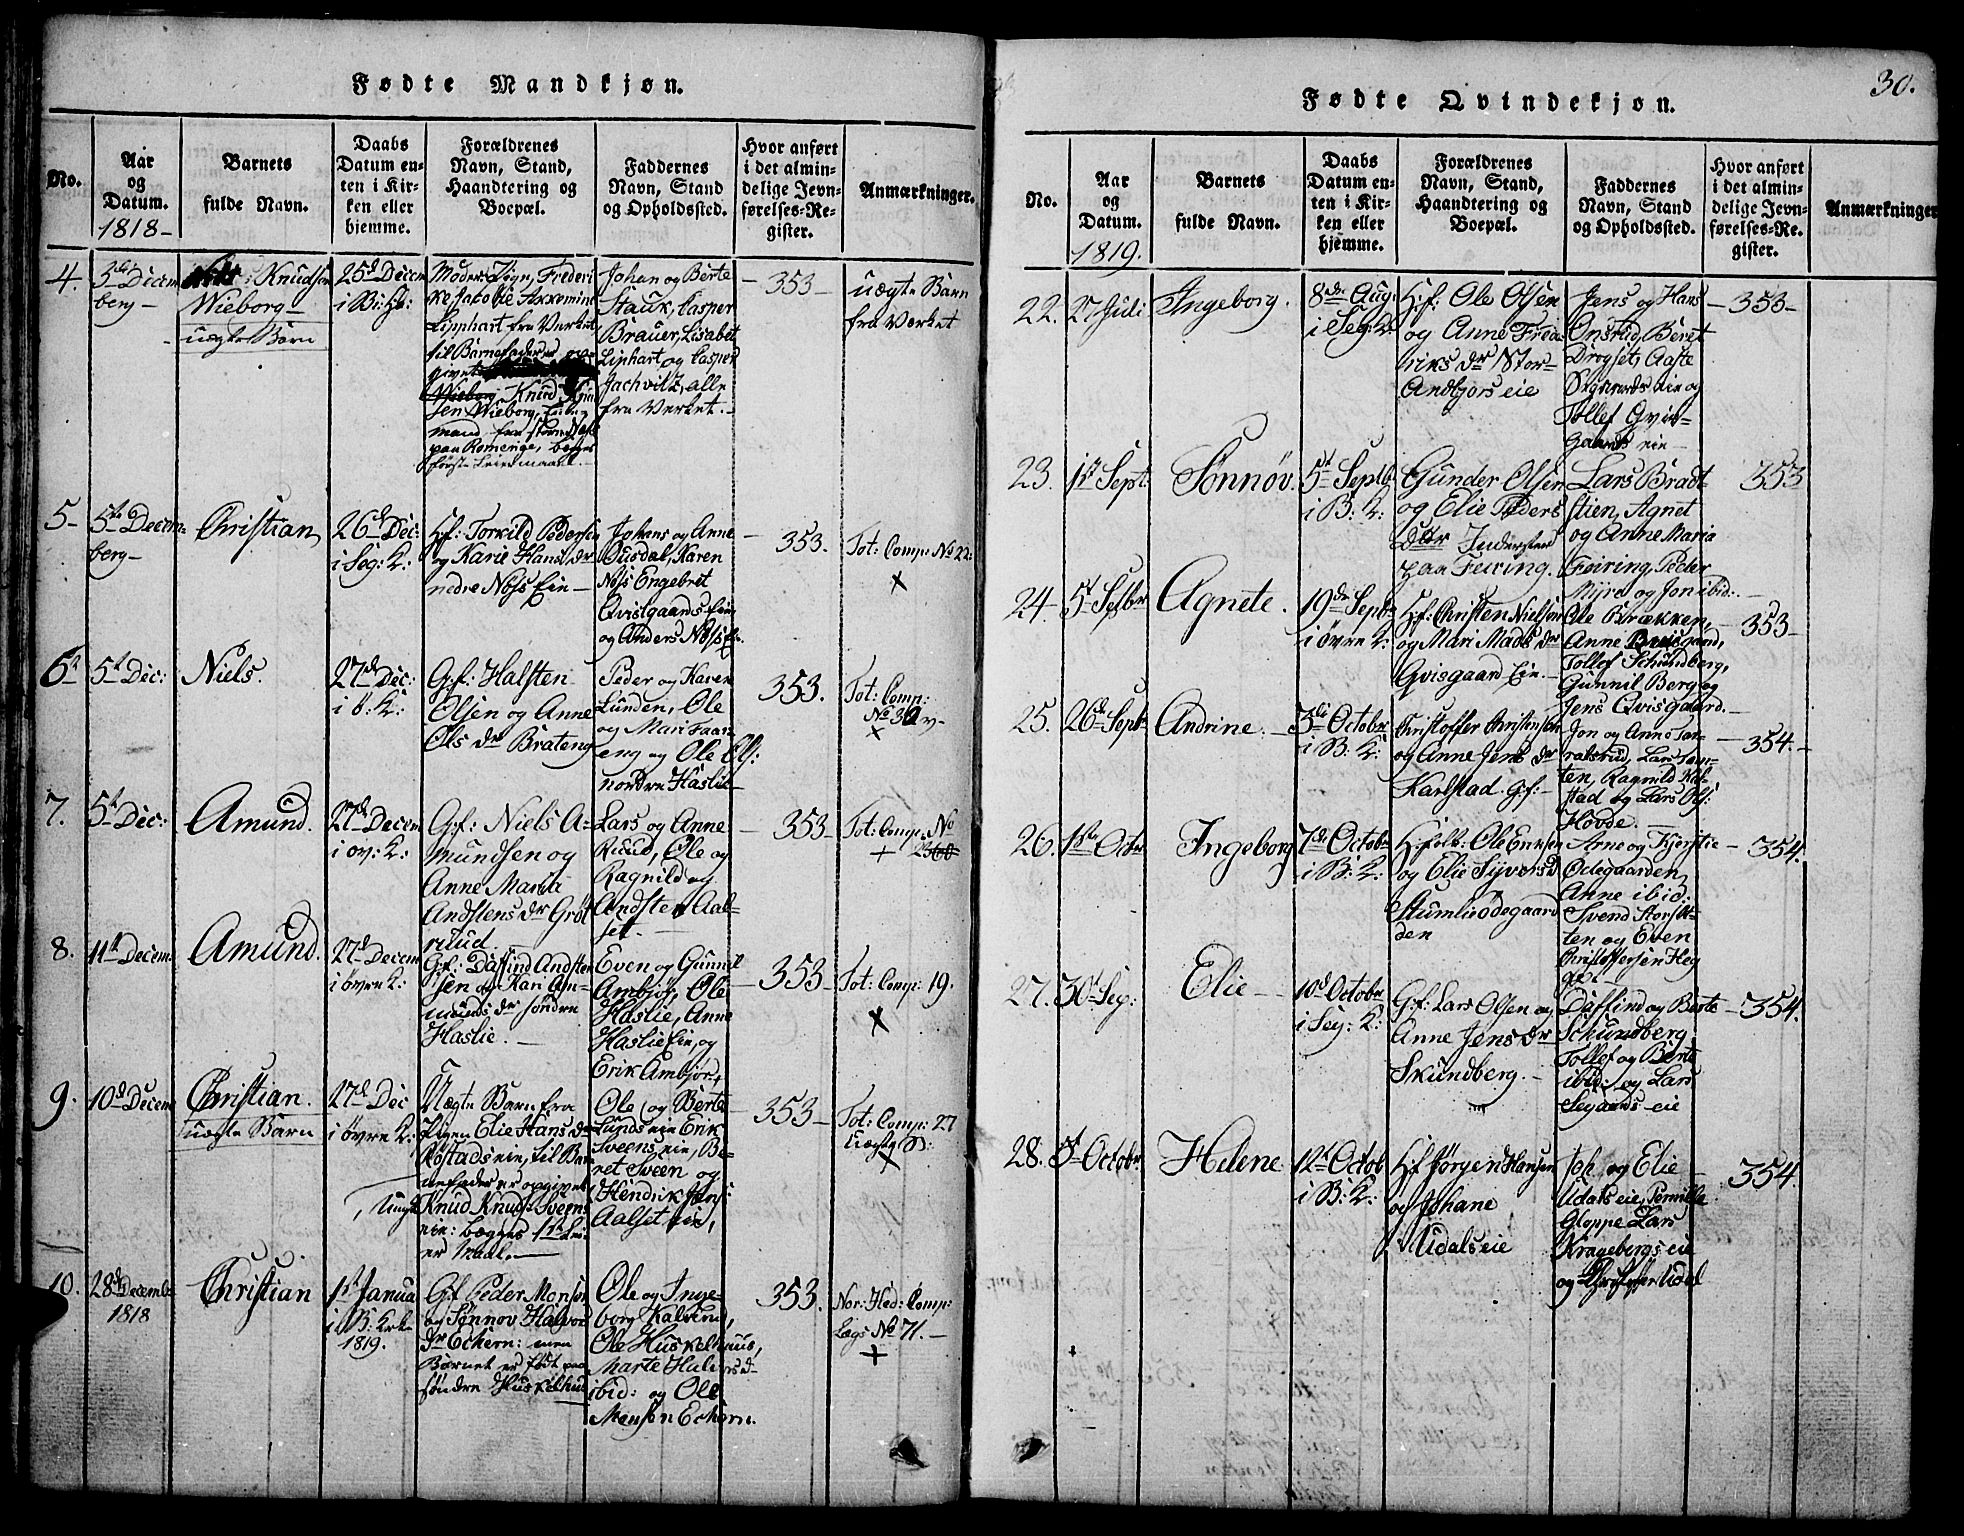 Fødte Mandkjøn.
No.
Aar
og
Datum.
1818-
Barnets
fulde Navn.
Daabs
Datum en-
ten i Kir-
ken eller
hjemme.
Forældrenes
Navn, Stand,
Haandtering og
Boepæl.
Faddernes
Navn, Stand
og Opholdssted.
Hvor anført
i det almin-
delige Jevn-
førelses-Re-
gister.
Anmærkninger.
4.
3de Decem
berg-
Knudsen
Wieborg-
uægte Barn
25d Decem
i B: K:
Moder: Pigen, Frederi
Lipphart fra Verket,
til Barnefader er op-
givet
Wieborg, Knud
sen Wieborg,
mand fra
paa Romerige, beges
første Leiermaal.-
Johan og Berte
Stauk, Casper
Brauer, Lisabet
Liphart og Casper
Jachvitz, alle
fra Verket.-
353-
uægte Barn
fra Verket
5-
5te Decem-
berg-
Christian,
26d Dec:
i Seg: K:
H.f: Torkild Pedersen
og Karie Hans dr
nedre Nøss Eie-
Johans og Anne
Ousdal, Karen
Nøss Engebret
Qvisgaards Eie
og Anders Nøss E.
353.
Tot: Comp: No 22:
x
6te
5te Dec:
Niels.
27d Dec:
i ø: K:
G.f: Halsten
Olsen og Anne
Ols dr Brateng
Peder og Karen
Lunden, Ole
og Mari Faas-
eng og Ole Ols:
nordre Haslie-
353.
Tot: Comp:
No 30
x
7.
5te Dec:
Amund.
27d Decem
i øv: K:
G.f: Niels A-
mundsen og
Anne Maria
Andstens dr Grøt
ruud.
Lars og Anne
Ruud, Ole og
Ragnild og
Andsten Aal-
set.-
353-
Tot: Comp: No
+
8.
11te Decem.
Amund.
27d Decem
i øvre K:
G.f: Daffind Andsten
sen og Kari Am-
munds dr søndre
Haslie.-
Even og Gunnil
Ambjør, Ole
Haslie, Anne
Haslie Eie, og
Erik Ambjør.
353-
Tot: Comp: 19.
x
9.
10d Decem
Christian.
uægte Barn
27d Dec
i øvre K:
Uægte Barn fra
Pigen Elie Hans dr
Røstads eie, til Bar
nefader er opgivet
Knud Knuds Sveens
eie: begges 1ste Lei
er Maal.-
Ole og Berte
Lunds eie Erik
Sveens, eie, Be-
ret Sveen og
Hendrik Jens:
Aalset Eie,
353-
Tot: Comp: 27
Uægte B:
x
10.
28d Decembr
1818
Christian
1ste Janua
i B: Kirke
1819.
G.f. Peder Monsen
og Sønnøv Halvor
dr Eckern: men
Barnet er født paa
søndre Huskelhus
Ole og Inge-
borg Kalrud,
Ole Huskelhuus,
Marte Halvorsd-
ibid: og Ole
Monsen Eckern.
353.
Nor: Hed: Comp:
Lægs No 71.-
+
30.
Fødte Qvindekjøn.
No.
Aar
og
Datum.
1819.
Barnets
fulde Navn.
Daabs
Datum en-
ten i Kir-
ken eller
hjemme.
Forældrenes
Navn, Stand,
Haandtering og
Boepæl.
Faddernes
Navn, Stand
og Opholdssted.
Hvor anført
i det almin-
delige Jevn-
førelses-Re-
gister.
Anmærkninger
22.
27 Juli
Ingeborg.
8de Aug:
i Seg: K:
H.f: Ole Olsen
og Anne Frede
riks dr Stor-
Andfjors eie
Jens og Hans
Onsrud, Beret
Drogset, Aaste
eie og
Tollef Qvis-
gaards eie-
353-
23.
1ste Sept:
Sønnøv.
5te Septb:
i B: K:
Gunder Olsen
og Elie Peders
Datr Inderster
paa Feiring.
Lars Bradt
stien, Agnet
og Anne Maria
Feiring, Peder
Mijre og Jon ibid:-
353
24.
5te Septbr
Agnete.
19de Septb
i øvre K:
H.f: Christen Nielsen
og Mari Mads dr
Qvisgaard Eie.-
Ole Brækken,
Anne Qvisgaard,
Tollef Schundberg,
Gunnil Berg og
Jens Qvisgaard.-
353-
25.
26de Septb:
Andrine.-
3de October
i B: K:
Christoffer Christensen
og Anne Jens dr
Karlstad. g.f:-
Jon og Anne Tar-
ralsrud, Lars Tom-
ten, Ragnild Kal-
stad og Lars Ols:
Hovde.-
354.-
26.
1ste Octbr
Ingeborg
7de Octobr
i B: K:
H.folk: Ole Eriksen
og Elie Sijversd
Stumliødegaard
den
Arne og Kjerstie
Ødegaarden,
Anne ibid:
Svend Storslet-
ten og Even
Christoffersen Heg
ge.-
354.
27.
30te Sep:
Elie-
10d October
i Seg: K:
G.f: Lars Olsen og
Anne Jens dr
Skundberg.-
Daffind og Berte
Schundberg
Tollef og Berte
ibid: og Lars
Segaards eie
354.
28.
5te Octobr
Helene
12te Octob
i B: K:
H.f Jørgen Hansen
og Johane
Udals eie
Joh. og Elie
Udals eie, Pernille
Gloppe Lars
Kragebergs eie
og Christoffer Udal
354.